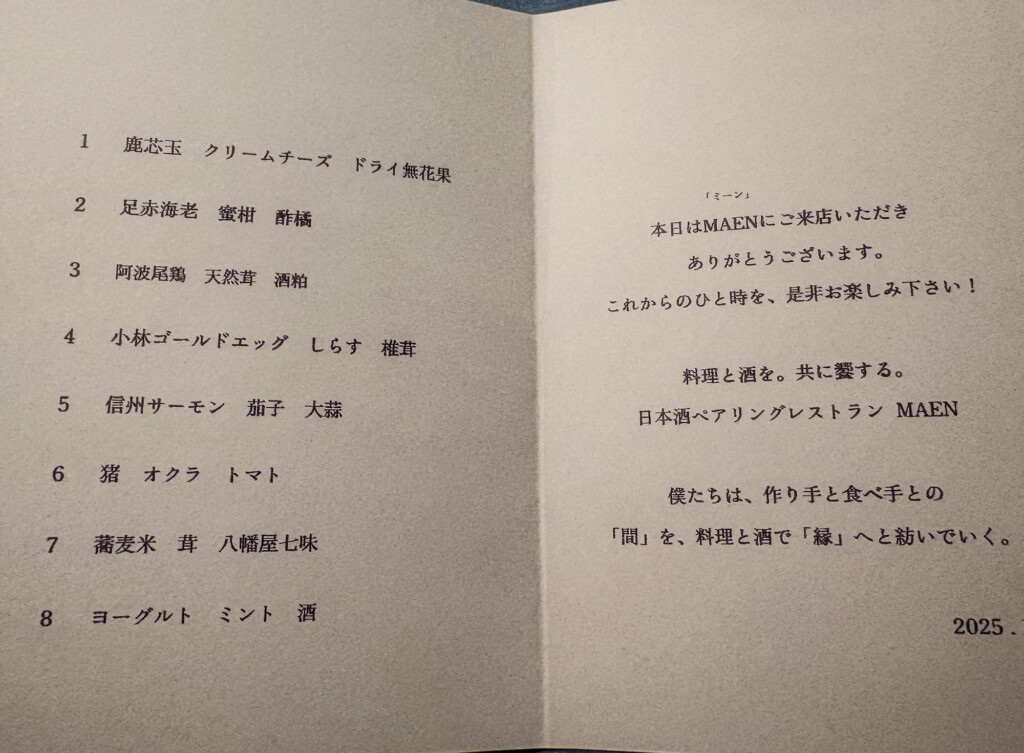 1 鹿芯玉 クリームチーズ ドライ無花果
2 足赤海老 蜜柑 酢橘
3 阿波尾鶏 天然茸 酒粕
4 小林ゴールドエッグ しらす 椎茸
5 信州サーモン 茄子 大蒜
6 猪 オクラ トマト
7 蕎麦米 茸 八幡屋七味
8 ヨーグルト ミント 酒
「ミーン」
本日はMAENにご来店いただき
ありがとうございます。
これからのひと時を、是非お楽しみ下さい！
料理と酒を。共に饗する。
日本酒ペアリングレストラン MAEN
僕たちは、作り手と食べ手との
「間」を、料理と酒で「縁」へと紡いでいく。
2025 .